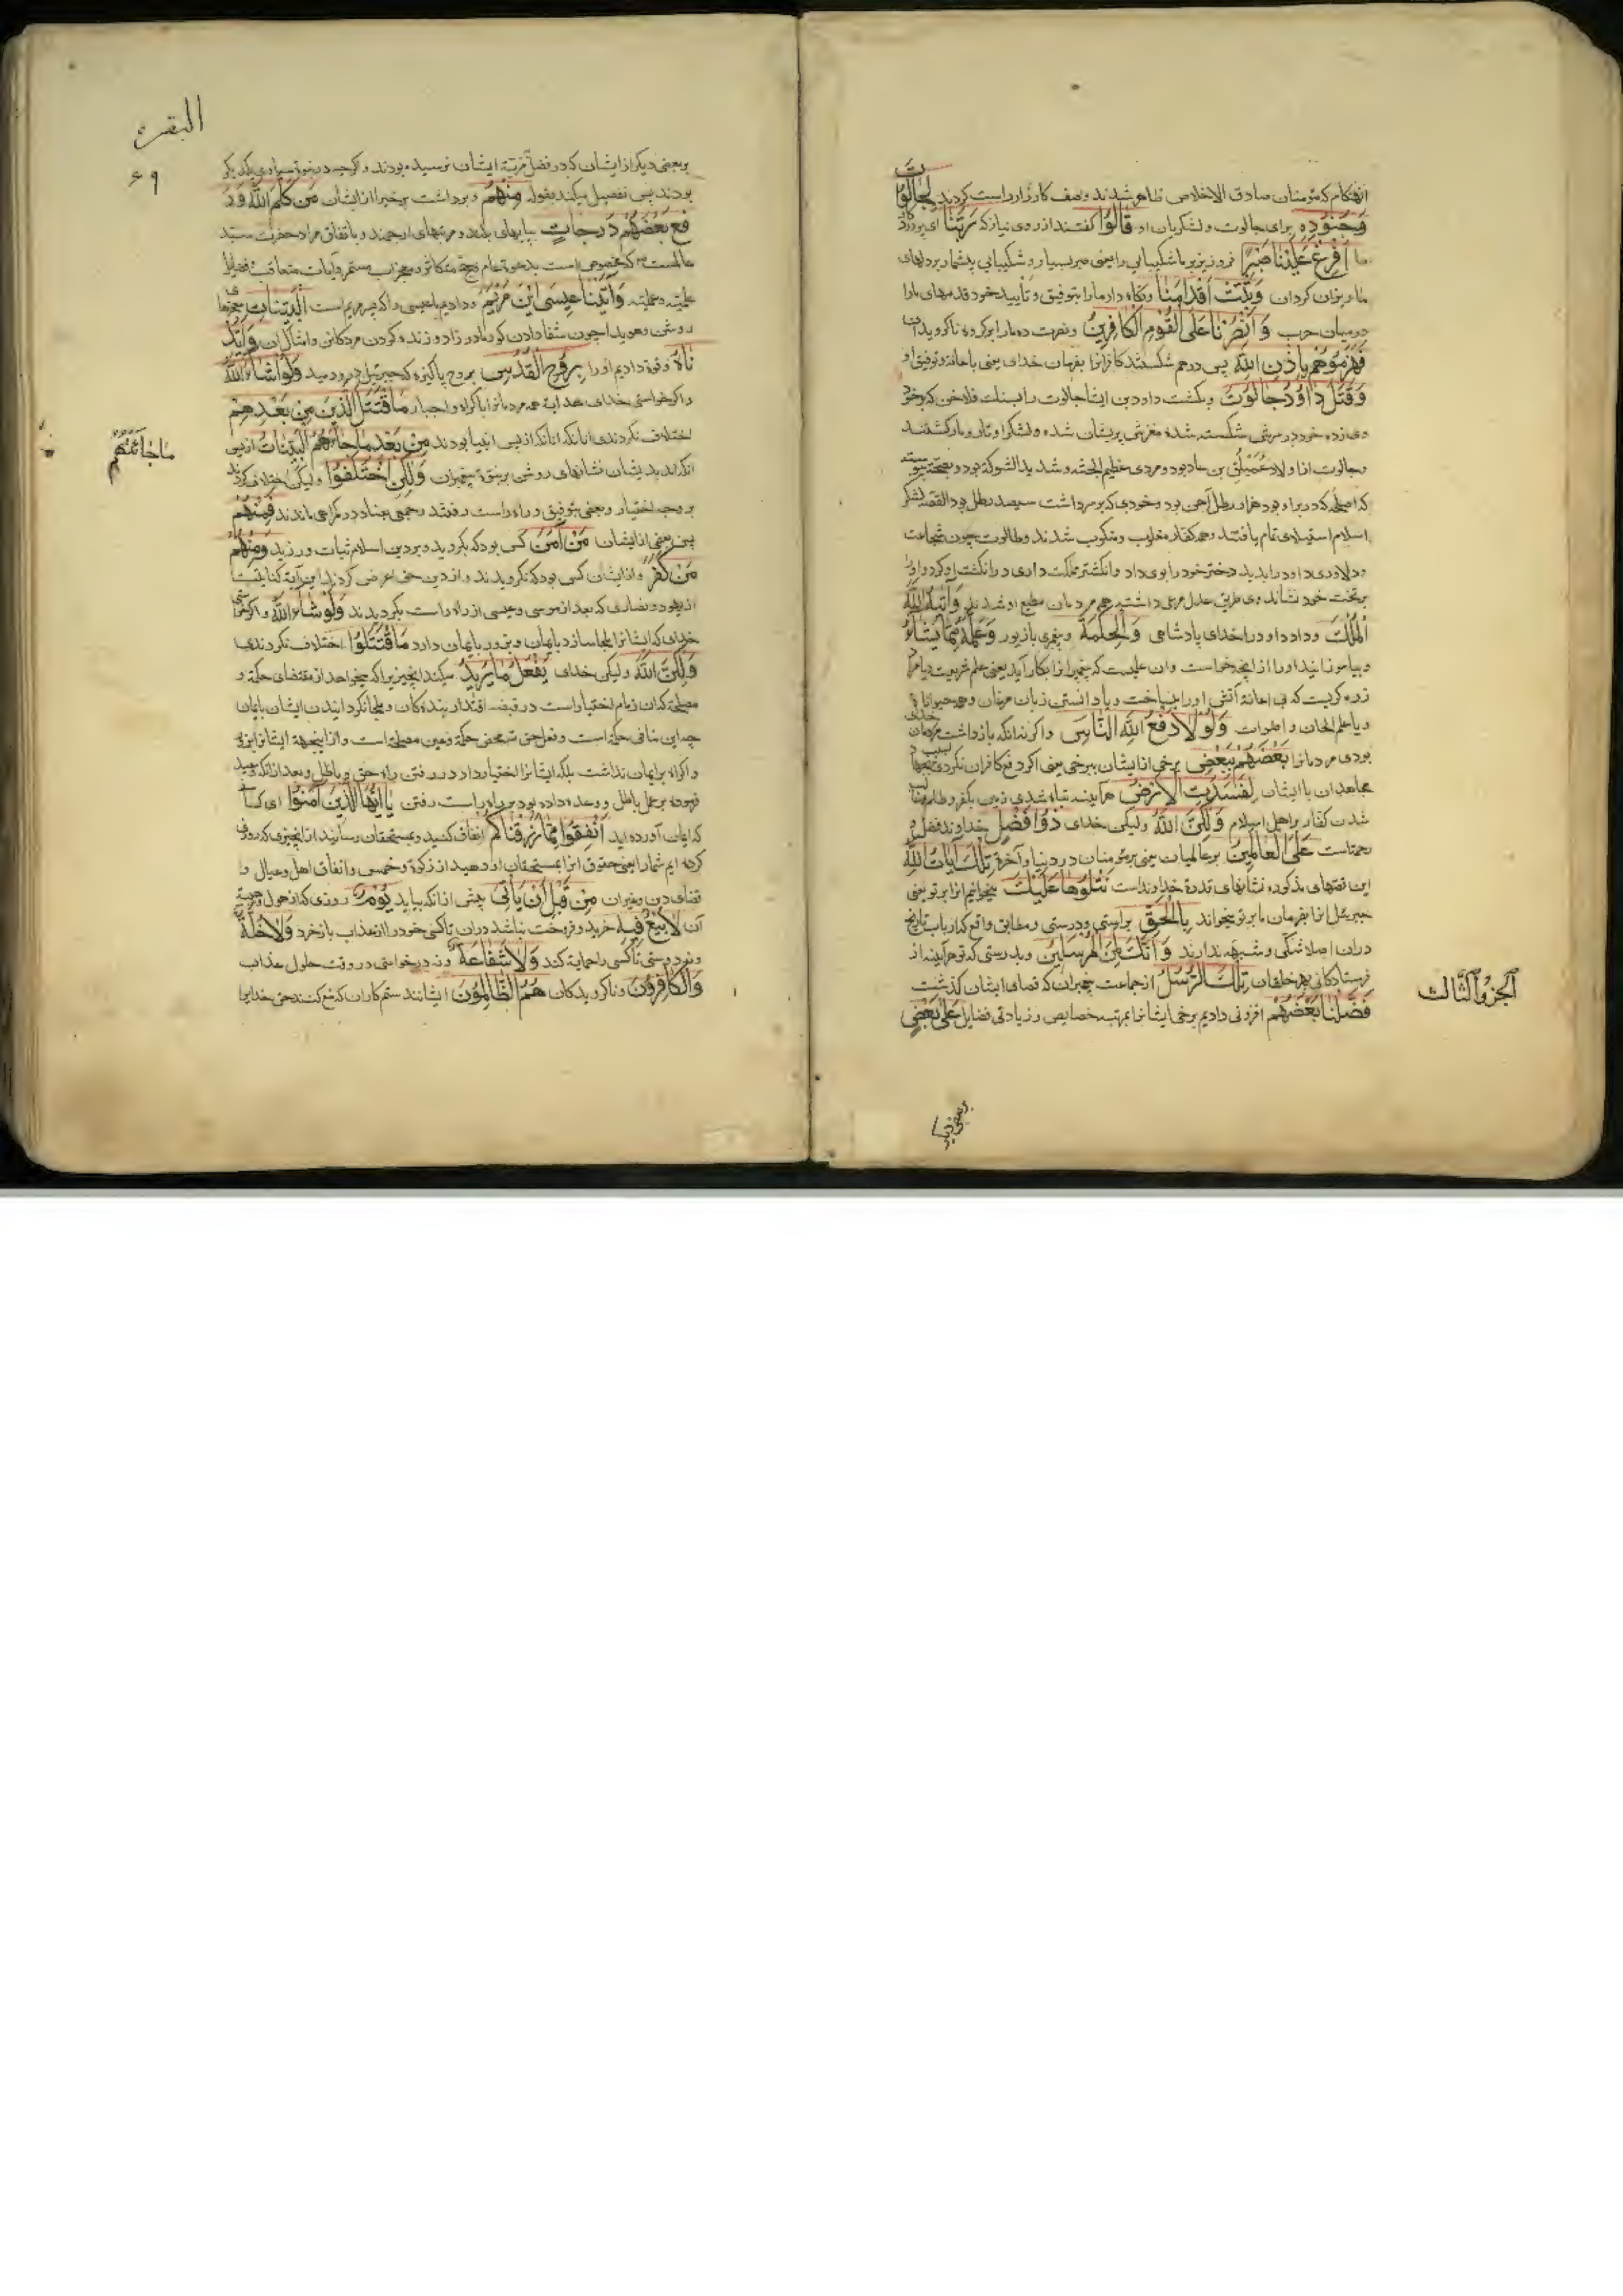 آنهنگام که مؤمنان صادق الاخلاص ظاهر شدند وصف کارزار راست کردند لجالوت
وجنوده برای جالوت و لشکریان او قالوا گفتند از روی نیاز که ربنا ای پروردکار
ما افرغ علینا صبرا فرو ریز بر ما شکیبائی را یعنی صبر بسیار و شکیبائی بیشمار بر دلهای
ما ریزان کردان وثبت اقدامنا ونکاه دار ما را بتوفیق و تأیید خود قدمهای ما را
در میان حرب وانصرنا علی القوم الکافرین ونصرت ده ما را بر کروه ناکرویدکان
فهزموهم باذن الله پس درهم شکستند کافرانرا بفرمان خدای یعنی باعانة و توفیق او
وقتل داود جالوت وبکشت داود بن ایشا جالوت را بسنک فلاخن که بر خود
وی زده خود در سرش شکسته شده مغزش پریشان شد و لشکر او تار و مار کشتند
وجالوت از اولاد عملیق بن عاد بود و مردی عظیم الجثه و شدید الشوکة بود
که اسلحه که در بر او بود هزار رطل آهن بود وخودی که بر سر داشت سیصد رطل بود القصه لشکر
اسلام استیلای تمام یافتند وهمه کفار مغلوب و منکوب شدند وطالوت چون شجاعت
ودلاوری داود را بدید دختر خود را بوی داد وانکشتر مملکت داری در انکشت او کرد و او را
بر تخت خود نشاند وی طریق عدل مرعی داشته همه مردمان مطیع او شدند وآتیه الله
الملک وداد داود را خدای پادشاهی والحکمة وپیغمبری با زبور وعلمه مما یشاء
وبیاموزانید او را از آنچه خواست وان علمیست که پیغمبرانرا بکار آید یعنی علم شریعت یا مراد
زره کریست که بی اعانة آتش او را میساخت ویا دانستن زبان مرغان وهمه حیوانات
ویا علم الحان و اصوات ولولا دفع الله الناس واکر نه آنکه بازداشت خدای
بودی مردمانرا بعضهم ببعض برخی از ایشان ببرخی یعنی اکر دفع کافران نکردی بسبب
مجاهدان با ایشان لفسدت الارض هرآینه تباه شدی زمین بکفر و ظلم
شدن کفار بر اهل اسلام ولکن الله ولیکن خدای ذو فضل خداوند فضل و
رحمتست علی العالمین بر عالمیان یعنی بر مؤمنان در دنیا و آخرة تلک آیات الله
این قصهای مذکوره نشانهای قدرة خداوند است نتلوها علیک میخوانیم انرا بر تو یعنی
جبرئیل انرا بفرمان ما بر تو میخواند بالحق براستی ودرستی ومطابق واقع که ارباب تاریخ
دران اصلا شکی و شبهه ندارند وانک لمن المرسلین وبدرستی که تو هرآینه از
فرستادکانی بهمه خلقان تلک الرسل از جماعت پیغمبران که قصهای ایشان کذشت
فضلنا بعضهم افزونی دادیم برخی ایشانرا بمرتب خصایص وزیادتی فضایل علی بعض
الجزو الثالث
بر بعضی دیکر
البقره
۶۹
بر بعضی دیکر از ایشان که در فضل مرتبة ایشان نرسیده بودند واکرچه در نبوة مساوی یکدیکر
بودند پس تفصیل میکند بقوله منهم وبرداشت برخی را از ایشان من کلم الله ور
فع بعضهم درجات بپایهای بلند ومرتبهای ارجمند وباتفاق مراد حضرت سید
عالمست که مخصوص است بدعوة عام وحجة متکاثره ومعجزات مستمره وآیات متعاقبه وفضایل
علمیه وعملیه وآتینا عیسی ابن مریم ودادیم بعیسی را که پسر مریم است البینات معجزها
روشن وهویدا چون شفا دادن کور مادرزاد وزنده کردن مردکان وامثال آن واید
ناه وقوة دادیم او را بروح القدس بروح پاکیزه که جبرئیل در ودمید ولو شاء الله
واکر خواستی خدای هدایة همه مردمانرا باکراه واجبار ما اقتتل الذین من بعدهم
اختلاف نکردندی انانکه از پس انبیا بودند من بعد ما جاءتهم البینات از پس
انکه آمد بدیشان نشانهای روشن بر نبوة پیغمبران ولکن اختلفوا ولیکن اختلاف کردند
بر وجه اختیار وبعضی بتوفیق براه راست رفتند وجمعی بعناد در کمراهی ماندند فمنهم
پس بعضی از ایشان من آمن کسی بود که بکروید وبر دین اسلام ثبات ورزید ومنهم
من کفر واز ایشان کسی بود که نکرویدند واز دین حق اعراض کردند این آیة کنایتست
از یهود و نصاری که بعد از موسی وعیسی از راه راست بکردیدند ولو شاء الله واکر خواستی
خدای که ایشانرا ملجا سازد بایمان وبزور بایمان دارد ما اقتتلوا اختلاف نکردندی
ولکن الله ولیکن خدای یفعل ما یرید میکند آنچیزیرا که میخواهد از مقتضای حکمة و
مصلحة که ان زمام اختیار است در قبضه اقتدار بندهکان وملجا نکردانیدن ایشان بایمان
چه این منافی حکمة است وفعل حق تعالی محض حکمة وعین مصلحة است واز اینجهة ایشانرا بزور
واکراه بر ایمان نداشت بلکه ایشانرا اختیار داد در رفتن راه حق و باطل وبعد از انکه وعید
فرموده بر عمل باطل و وعده داده بود بر راه راست رفتن یا ایها الذین آمنوا ای کسانی
که ایمان آورده اید انفقوا مما رزقناکم انفاق کنید وبمستحقان رسانید از انچیزی که روزی
کرده ایم شما را یعنی حقوق انرا بمستحقان او دهید از زکوة وخمس وانفاق اهل وعیال و
قضای دین وغیران من قبل ان یأتی پیش از انکه بیاید یوم روزی که از هول وهیبة
آن لا بیع فیه خرید وفروخت نباشد دران تا کسی خود را از عذاب بازخرد ولا خلة
ونه دوستی تا کسی را حمایة کند ولا شفاعة ونه درخواستی در وقت حلول عذاب
والکافرون وناکرویدکان هم الظالمون ایشانند ستم کاران که منع کنند حق خدایرا
ما جائتهم